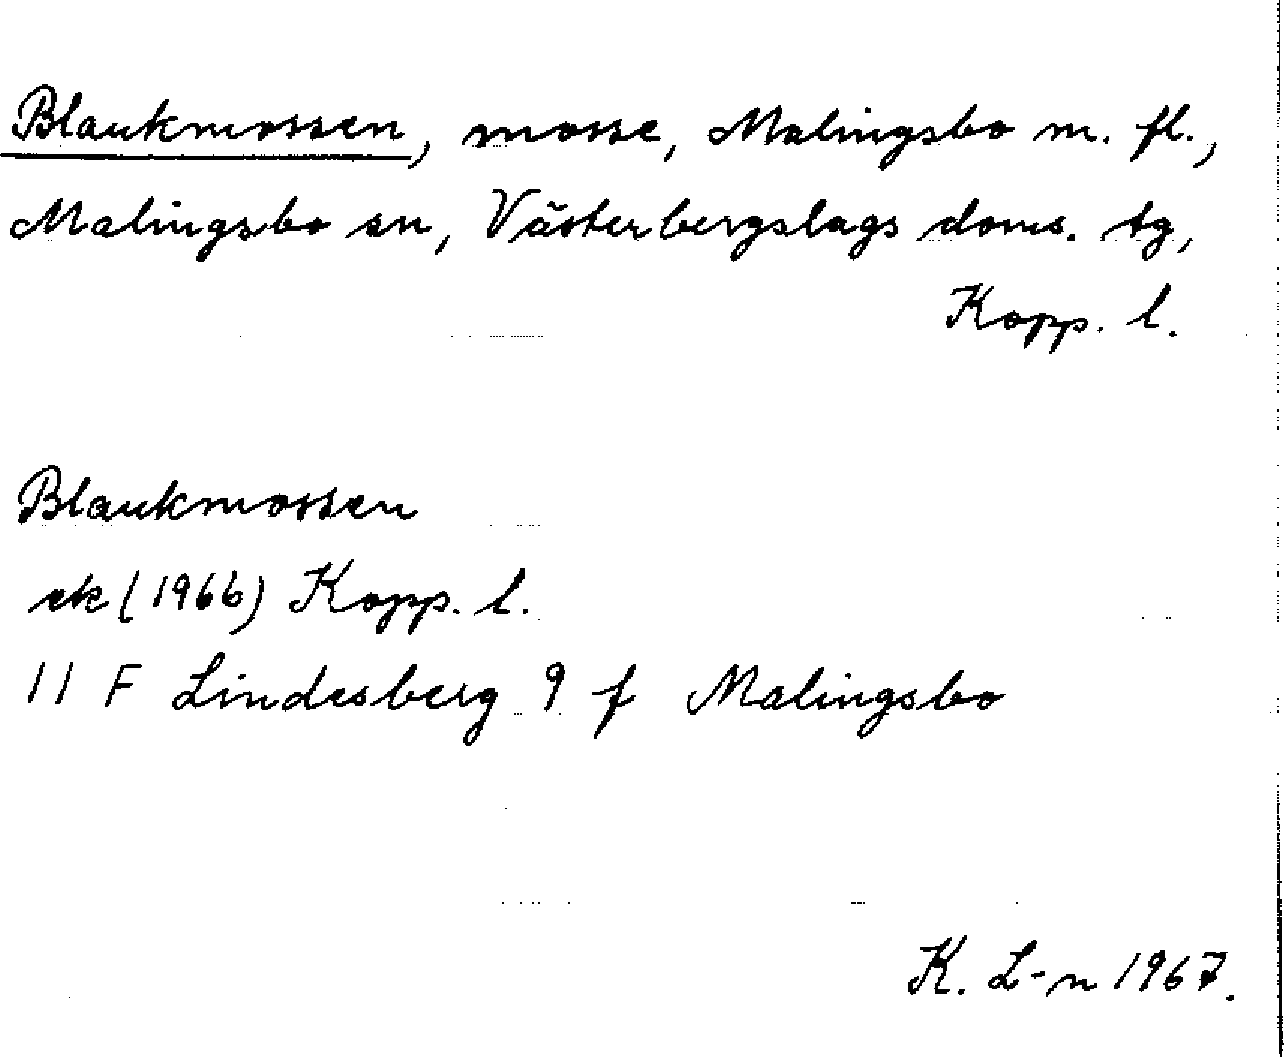 Blankmossen, mosse, Malingsbo m. fl.,
Malingsbo sn, Västerbergslags doms. tg,
Kopp. l.
Blankmossen
ek (1966) Kopp. l.
11 F Lindesberg 9 f Malingsbo
K. L-n 1967.